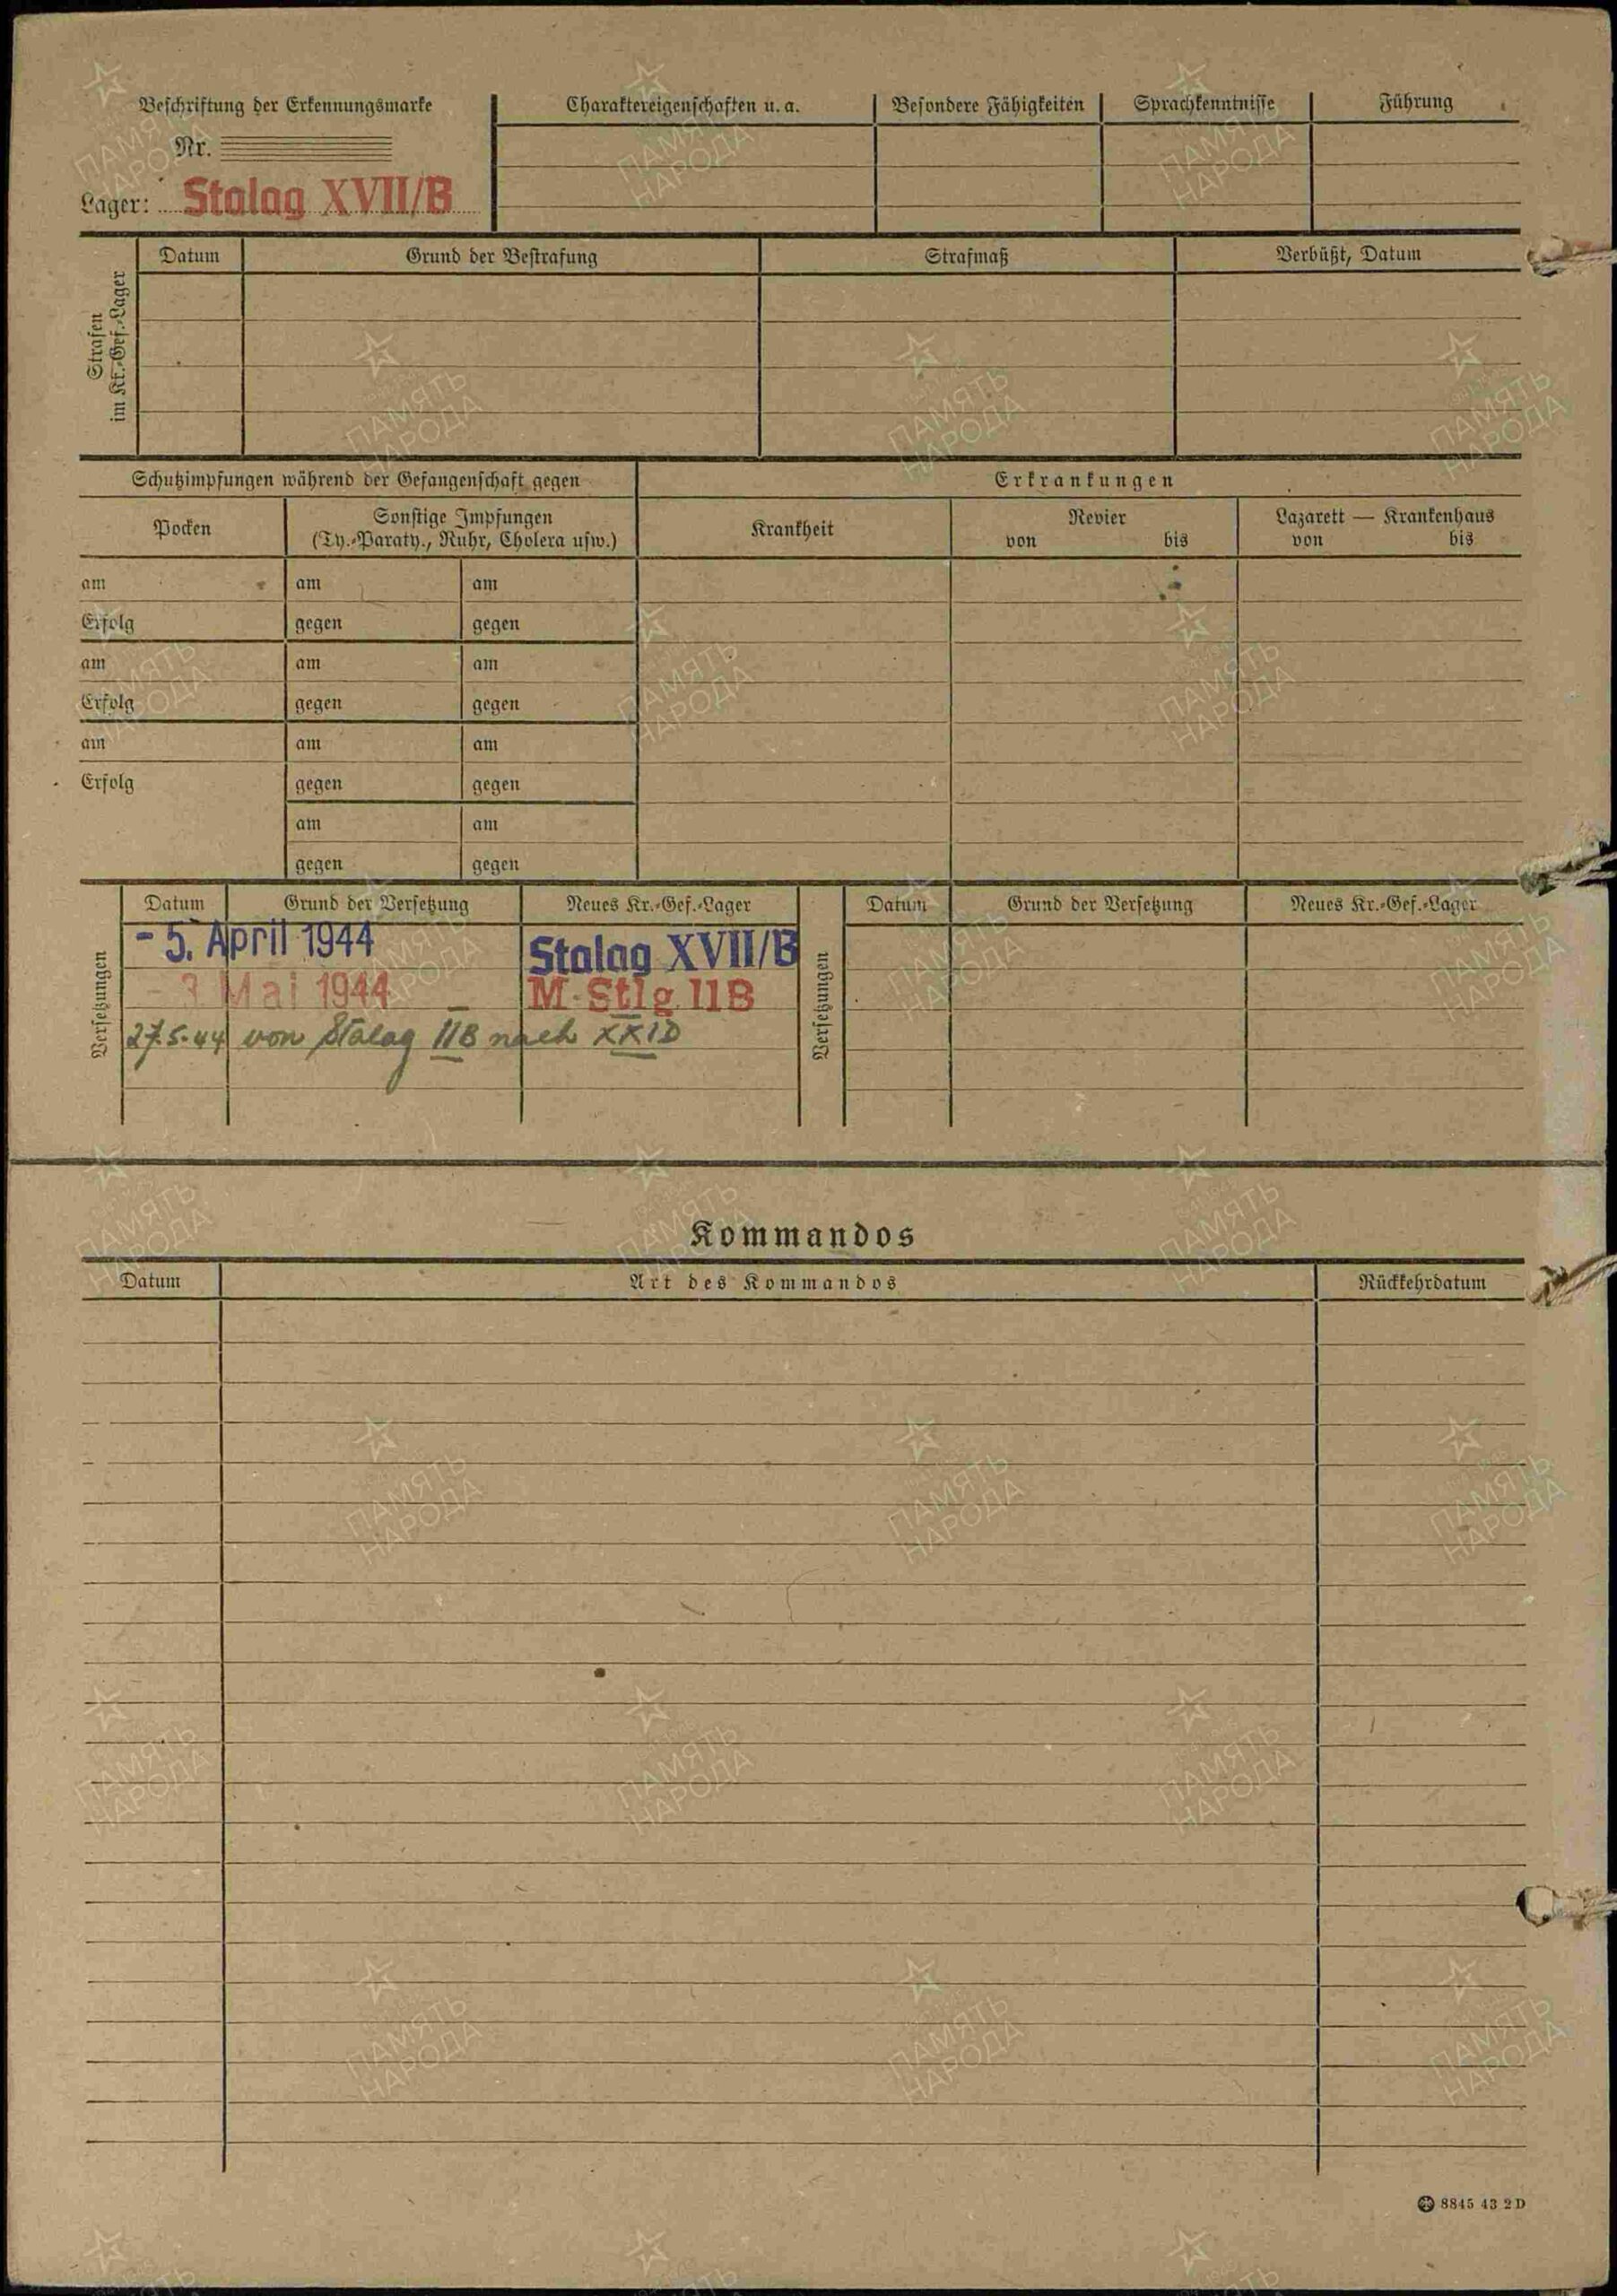 Beschriftung der Erkennungsmarke
Nr.
Lager: Stalag XVII/B
Charaktereigenschaften u. a.
Besondere Fähigkeiten
Sprachkenntnisse
Führung
Strafen
im Kr.-Gef.-Lager
Datum
Grund der Bestrafung
Strafmaß
Verbüßt, Datum
Schutzimpfungen während der Gefangenschaft gegen
Erkrankungen
Pocken
Sonstige Impfungen
(Ty.-Paraty., Ruhr, Cholera usw.)
Krankheit
Revier
von bis
Lazarett — Krankenhaus
von bis
am am am
Erfolg gegen gegen
am am am
Erfolg gegen gegen
am am am
Erfolg gegen gegen
am am
gegen gegen
Versetzungen
Datum Grund der Versetzung Neues Kr.-Gef.-Lager
- 5. April 1944 Stalag XVII/B
- 3. Mai 1944 M-Stlg. IIB
27.5.44 von Stalag IIB nach XXID
Versetzungen
Datum Grund der Versetzung Neues Kr.-Gef.-Lager
Kommandos
Datum Art des Kommandos Rückkehrdatum
8845 43 2 D
ПАМЯТЬ
НАРОДА